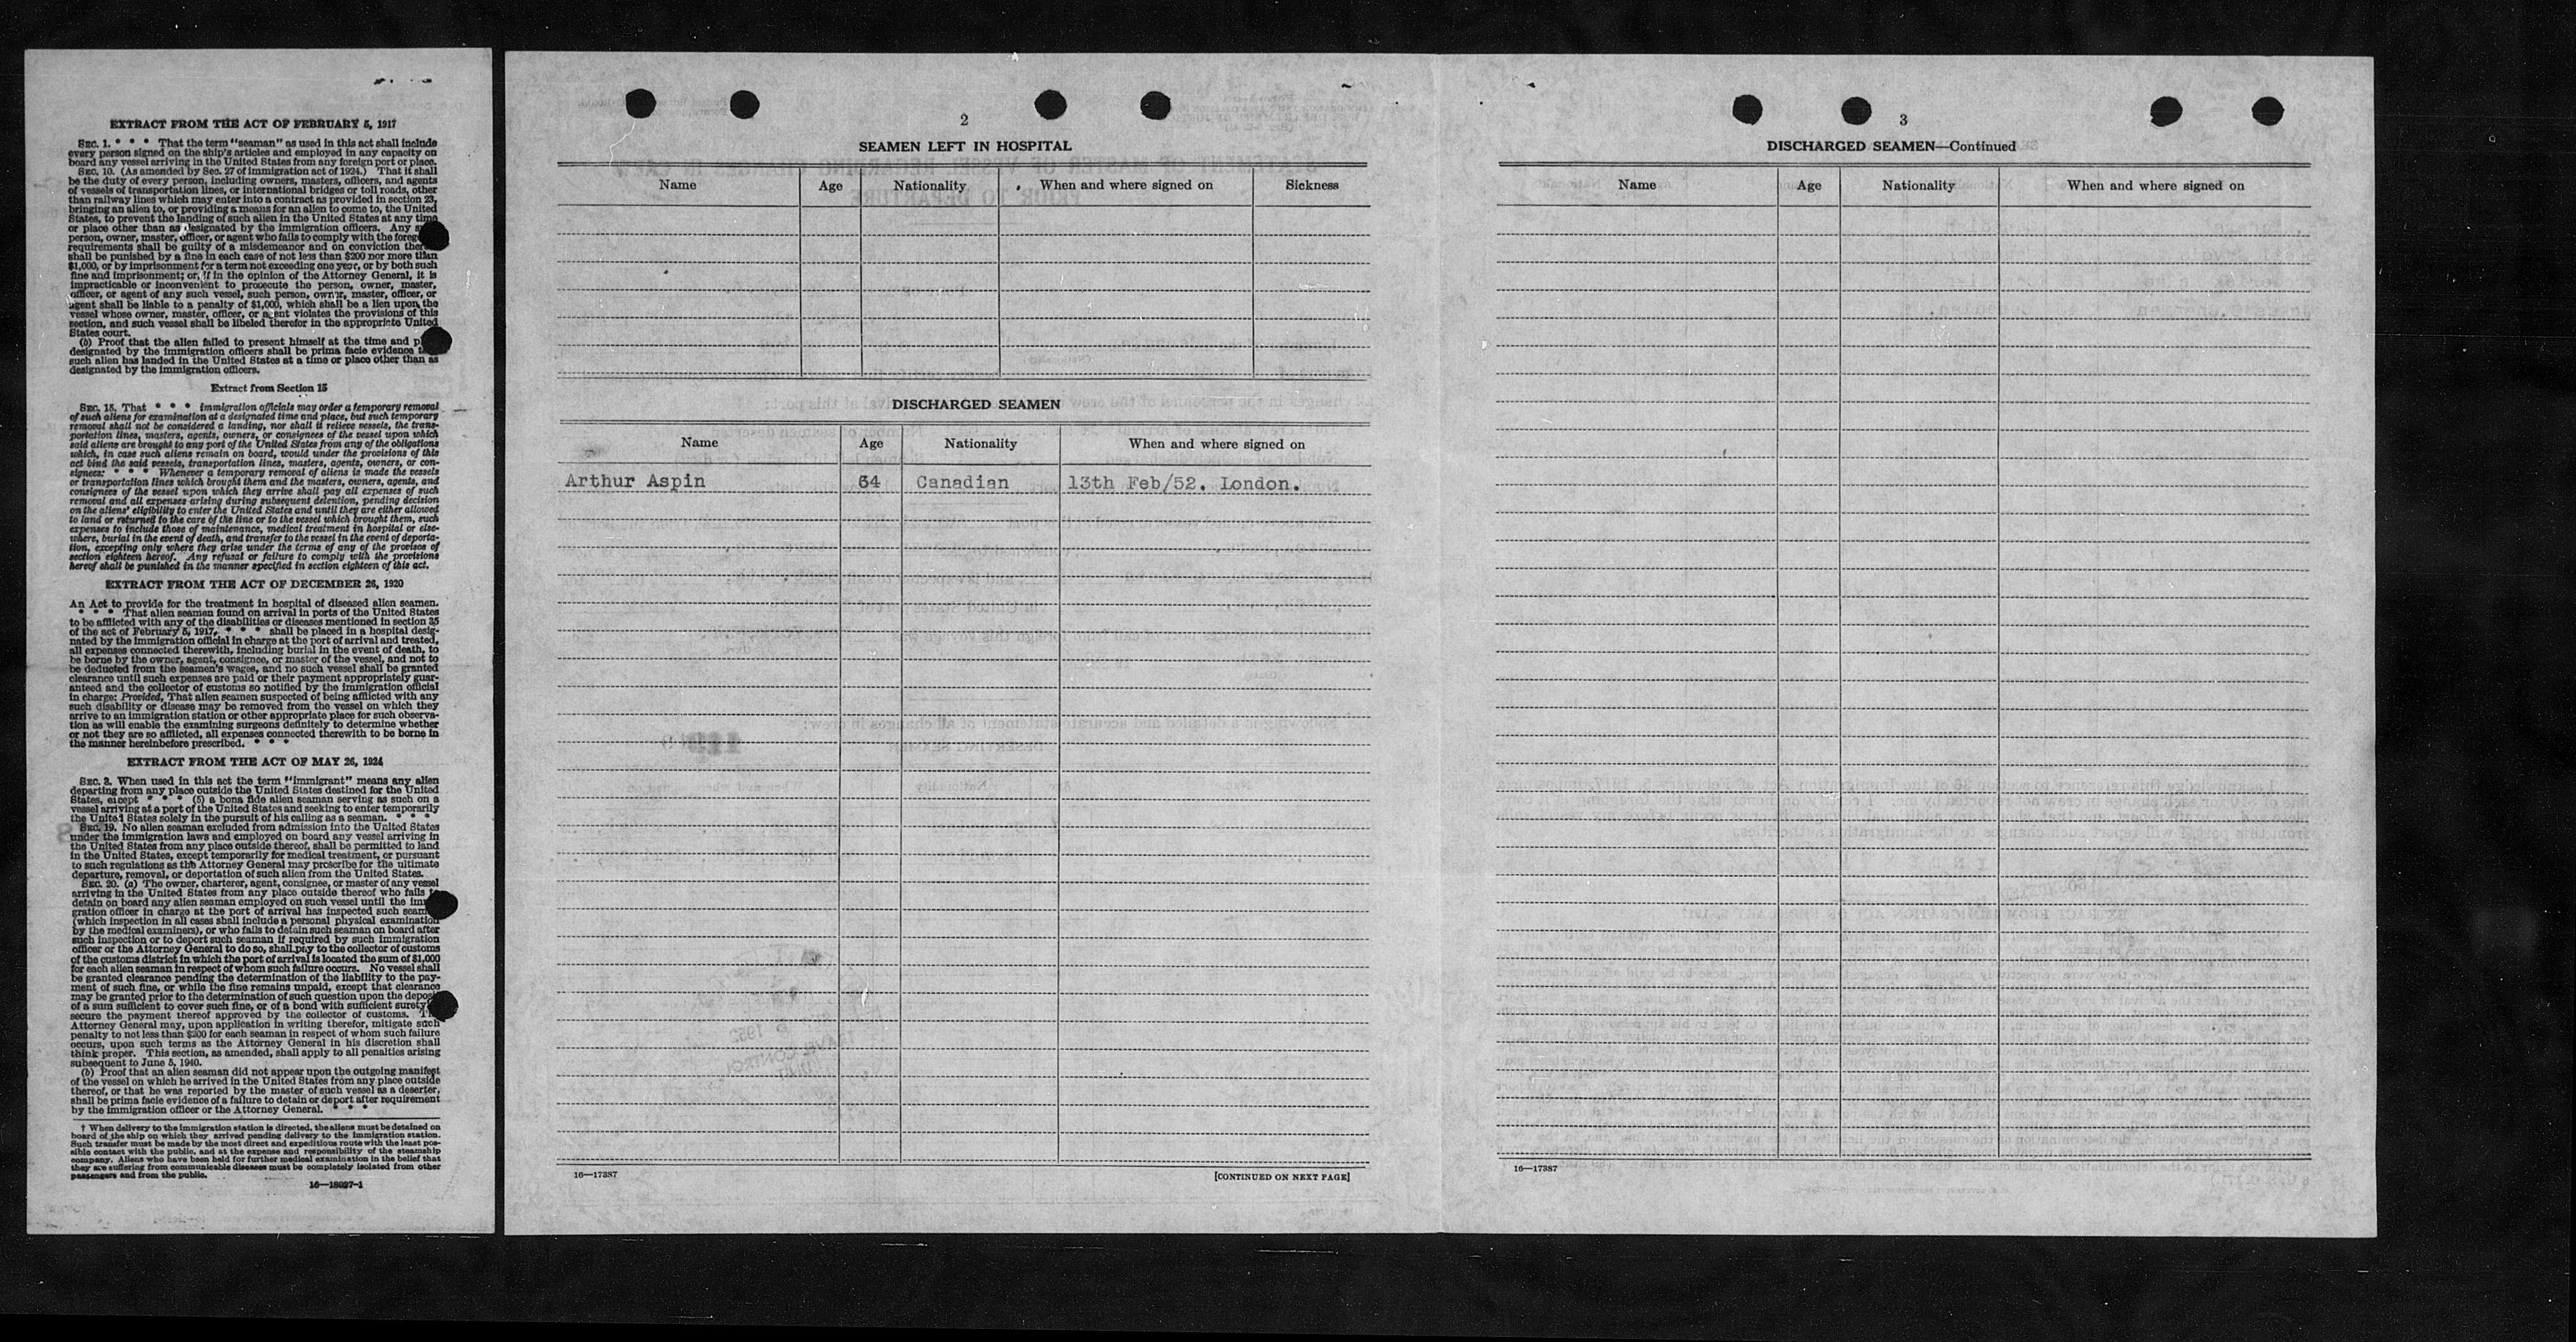 EXTRACT FROM THE ACT OF FEBRUARY 5, 1917
SEC. 1. * * * That the term "seaman" as used in this act shall include
every person signed on the ship's articles and employed in any capacity on
board any vessel arriving in the United States from any foreign port or place.
SEC. 10. (As amended by Sec. 27 of immigration act of 1924.) That it shall
be the duty of every person, including owners, masters, officers, and agents
of vessels of transportation lines, or international bridges or toll roads, other
than railway lines which may enter into a contract as provided in section 23,
bringing an alien to, or providing a means for an alien to come to, the United
States, to prevent the landing of such alien in the United States at any time
or place other than as designated by the immigration officers. Any
person, owner, master, officer, or agent who fails to comply with the
requirements shall be guilty of a misdemeanor and on conviction
shall be punished by a fine in each case of not less than $200 nor more than
$1,000, or by imprisonment for a term not exceeding one year, or by both such
fine and imprisonment; or, if in the opinion of the Attorney General, it is
impracticable or inconvenient to prosecute the person, owner, master,
officer, or agent of any such vessel, such person, owner, master, officer, or
agent shall be liable to a penalty of $1,000, which shall be a lien upon the
vessel whose owner, master, officer, or agent violates the provisions of this
section, and such vessel shall be libeled therefor in the appropriate United
States court.
(b) Proof that the alien failed to present himself at the time and
designated by the immigration officers shall be prima facie evidence
such alien has landed in the United States at a time or place other than as
designated by the immigration officers.
Extract from Section 15
SEC. 15. That * * * immigration officials may order a temporary removal
of such aliens for examination at a designated time and place, but such temporary
removal shall not be considered a landing, nor shall it relieve vessels, the trans-
portation lines, masters, agents, owners, or consignees of the vessel upon which
said aliens are brought to any port of the United States from any of the obligations
which, in case such aliens remain on board, would under the provisions of this
act bind the said vessels, transportation lines, masters, agents, owners, or con-
signees: * * * Whenever a temporary removal of aliens is made the vessels
or transportation lines which brought them and the masters, owners, agents, and
consignees of the vessel upon which they arrive shall pay all expenses of such
removal and all expenses arising during subsequent detention, pending decision
on the aliens' eligibility to enter the United States and until they are either allowed
to land or returned to the care of the line or to the vessel which brought them, such
expenses to include those of maintenance, medical treatment in hospital or else-
where, burial in the event of death, and transfer to the vessel in the event of deporta-
tion, excepting only where they arise under the terms of any of the provisos of
section eighteen hereof. Any refusal or failure to comply with the provisions
hereof shall be punished in the manner specified in section eighteen of this act.
EXTRACT FROM THE ACT OF DECEMBER 26, 1920
An Act to provide for the treatment in hospital of diseased alien seamen.
* * * That alien seamen found on arrival in ports of the United States
to be afflicted with any of the disabilities or diseases mentioned in section 35
of the act of February 5, 1917, * * * shall be placed in a hospital desig-
nated by the immigration official in charge at the port of arrival and treated,
all expenses connected therewith, including burial in the event of death, to
be borne by the owner, agent, consignee, or master of the vessel, and not to
be deducted from the seamen's wages, and no such vessel shall be granted
clearance until such expenses are paid or their payment appropriately guar-
anteed and the collector of customs so notified by the immigration official
in charge: Provided, That alien seamen suspected of being afflicted with any
such disability or disease may be removed from the vessel on which they
arrive to an immigration station or other appropriate place for such observa-
tion as will enable the examining surgeons definitely to determine whether
or not they are so afflicted, all expenses connected therewith to be borne in
the manner hereinbefore prescribed. * * *
EXTRACT FROM THE ACT OF MAY 26, 1924
SEC. 3. When used in this act the term "immigrant" means any alien
departing from any place outside the United States destined for the United
States, except * * * (5) a bona fide alien seaman serving as such on a
vessel arriving at a port of the United States and seeking to enter temporarily
the United States solely in the pursuit of his calling as a seaman. * * * *
SEC. 19. No alien seaman excluded from admission into the United States
under the immigration laws and employed on board any vessel arriving in
the United States from any place outside thereof, shall be permitted to land
in the United States, except temporarily for medical treatment, or pursuant
to such regulations as the Attorney General may prescribe for the ultimate
departure, removal, or deportation of such alien from the United States.
SEC. 20. (a) The owner, charterer, agent, consignee, or master of any vessel
arriving in the United States from any place outside thereof who fails to
detain on board any alien seaman employed on such vessel until the immi-
gration officer in charge at the port of arrival has inspected such seaman
(which inspection in all cases shall include a personal physical examination
by the medical examiners), or who fails to detain such seaman on board after
such inspection or to deport such seaman if required by such immigration
officer or the Attorney General to do so, shall pay to the collector of customs
of the customs district in which the port of arrival is located the sum of $1,000
for each alien seaman in respect of whom such failure occurs. No vessel shall
be granted clearance pending the determination of the liability to the pay-
ment of such fine, or while the fine remains unpaid, except that clearance
may be granted prior to the determination of such question upon the deposit
of a sum sufficient to cover such fine, or of a bond with sufficient surety
secure the payment thereof approved by the collector of customs. The
Attorney General may, upon application in writing therefor, mitigate such
penalty to not less than $200 for each seaman in respect of whom such failure
occurs, upon such terms as the Attorney General in his discretion shall
think proper. This section, as amended, shall apply to all penalties arising
subsequent to June 5, 1940.
(b) Proof that an alien seaman did not appear upon the outgoing manifest
of the vessel on which he arrived in the United States from any place outside
thereof, or that he was reported by the master of such vessel as a deserter,
shall be prima facie evidence of a failure to detain or deport after requirement
by the immigration officer or the Attorney General. * * *
† When delivery to the immigration station is directed, the aliens must be detained on
board of the ship on which they arrived pending delivery to the immigration station.
Such transfer must be made by the most direct and expeditious route with the least pos-
sible contact with the public, and at the expense and responsibility of the steamship
company. Aliens who have been held for further medical examination in the belief that
they are suffering from communicable diseases must be completely isolated from other
passengers and from the public.
16—18027-1
2
SEAMEN LEFT IN HOSPITAL
Name Age Nationality When and where signed on Sickness
DISCHARGED SEAMEN
Name Age Nationality When and where signed on
Arthur Aspin 64 Canadian 13th Feb/52. London.
16—17387 [CONTINUED ON NEXT PAGE]
3
DISCHARGED SEAMEN—Continued
Name Age Nationality When and where signed on
16—17387